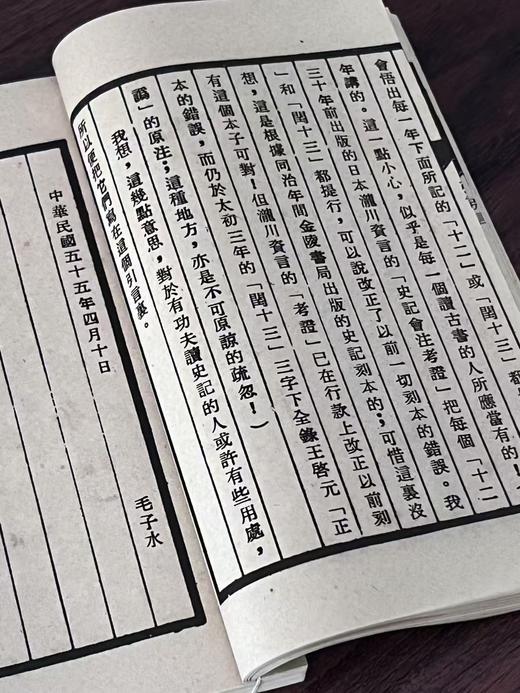 會悟出每一年下面所記的「十二」或「閏十三」都
年講的。這一點小心，似乎是每一個讀古書的人所應當有的！
三十年前出版的日本瀧川資言的「史記會注考證」把每個「十二
」和「閏十三」都提行，可以說改正了以前一切刻本的錯誤。我
想，這是根據同治年間金陵書局出版的史記刻本的；可惜這裏沒
有這個本子可對！但瀧川資言的「考證」已在行款上改正以前刻
本的錯誤，而仍於太初三年的「閏十三」三字下全錄王啓元「正
譌」的原注；這種地方，亦是不可原諒的疏忽！）
我想，這幾點意思，對於有功夫讀史記的人或許有些用處，
所以便把它們寫在這個引言裏。
中華民國五十五年四月十日
毛子水